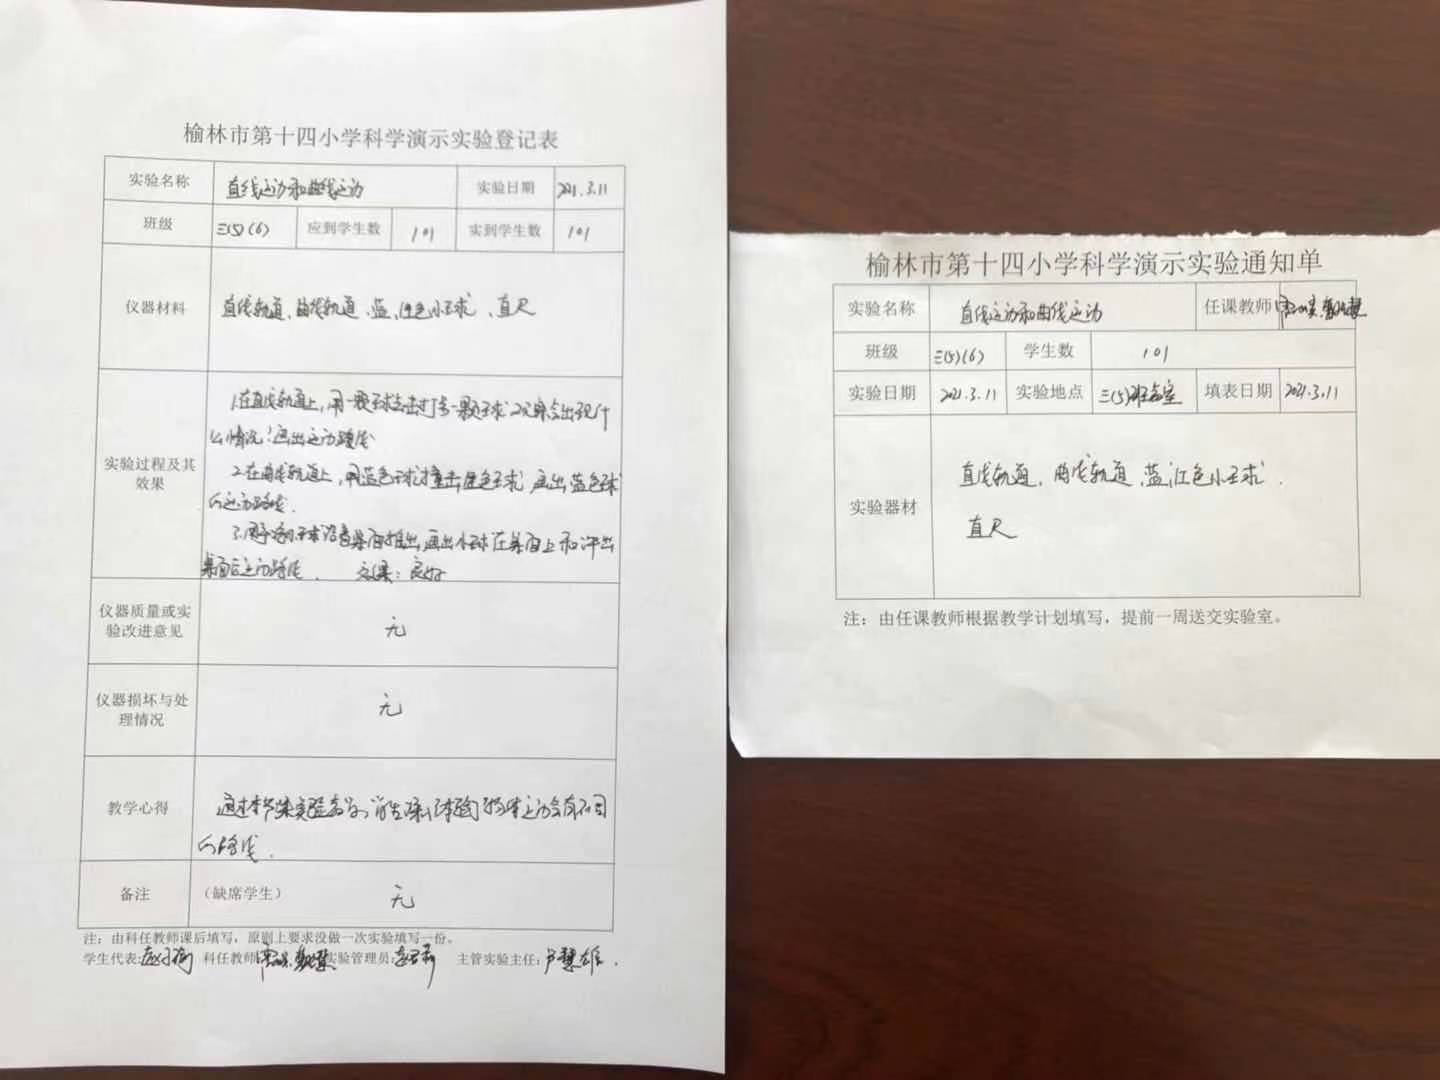 榆林市第十四小学科学演示实验登记表
实验名称 直线运动和曲线运动 实验日期 2021.3.11
班级 三(5)(6) 应到学生数 101 实到学生数 101
仪器材料 直线轨道、曲线轨道、蓝、红色小球、直尺
实验过程及其效果
1.在直线轨道上,用一颗球去击打另一颗球 会出现什
么情况?画出运动路线
2.在曲线轨道上,用蓝色球撞击红色球 画出蓝色球
的运动路线.
3. 球沿着桌面推出,画出小球在桌面上和冲出
桌面后运动路线. 效果:良好
仪器质量或实验改进意见 无
仪器损坏与处理情况 无
教学心得 通过本节课实验教学,学生 体验了物体运动会有不同
的路线.
备注 (缺席学生) 无
注:由科任教师课后填写,原则上要求没做一次实验填写一份。
学生代表: 科任教师 实验管理员: 主管实验主任:
榆林市第十四小学科学演示实验通知单
实验名称 直线运动和曲线运动 任课教师
班级 三(5)(6) 学生数 101
实验日期 2021.3.11 实验地点 三(5)班教室 填表日期 2021.3.11
实验器材 直线轨道、曲线轨道、蓝,红色小球.
直尺
注:由任课教师根据教学计划填写,提前一周送交实验室。